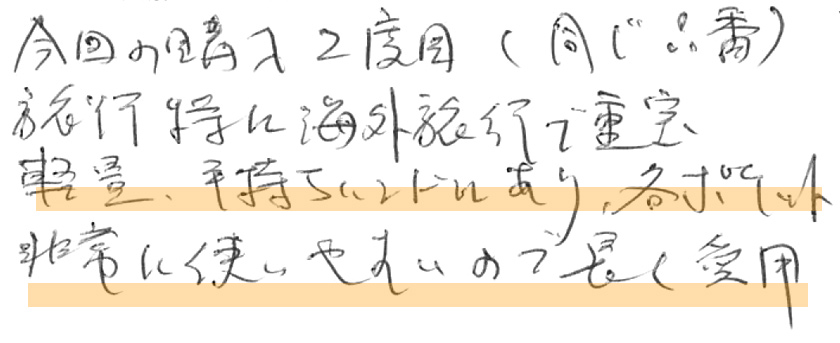 今回の購入2度目(同じ品番)
旅行特に海外旅行で重宝
軽量、手持ちハンドルあり、各ポケット
非常に使いやすいので長く愛用